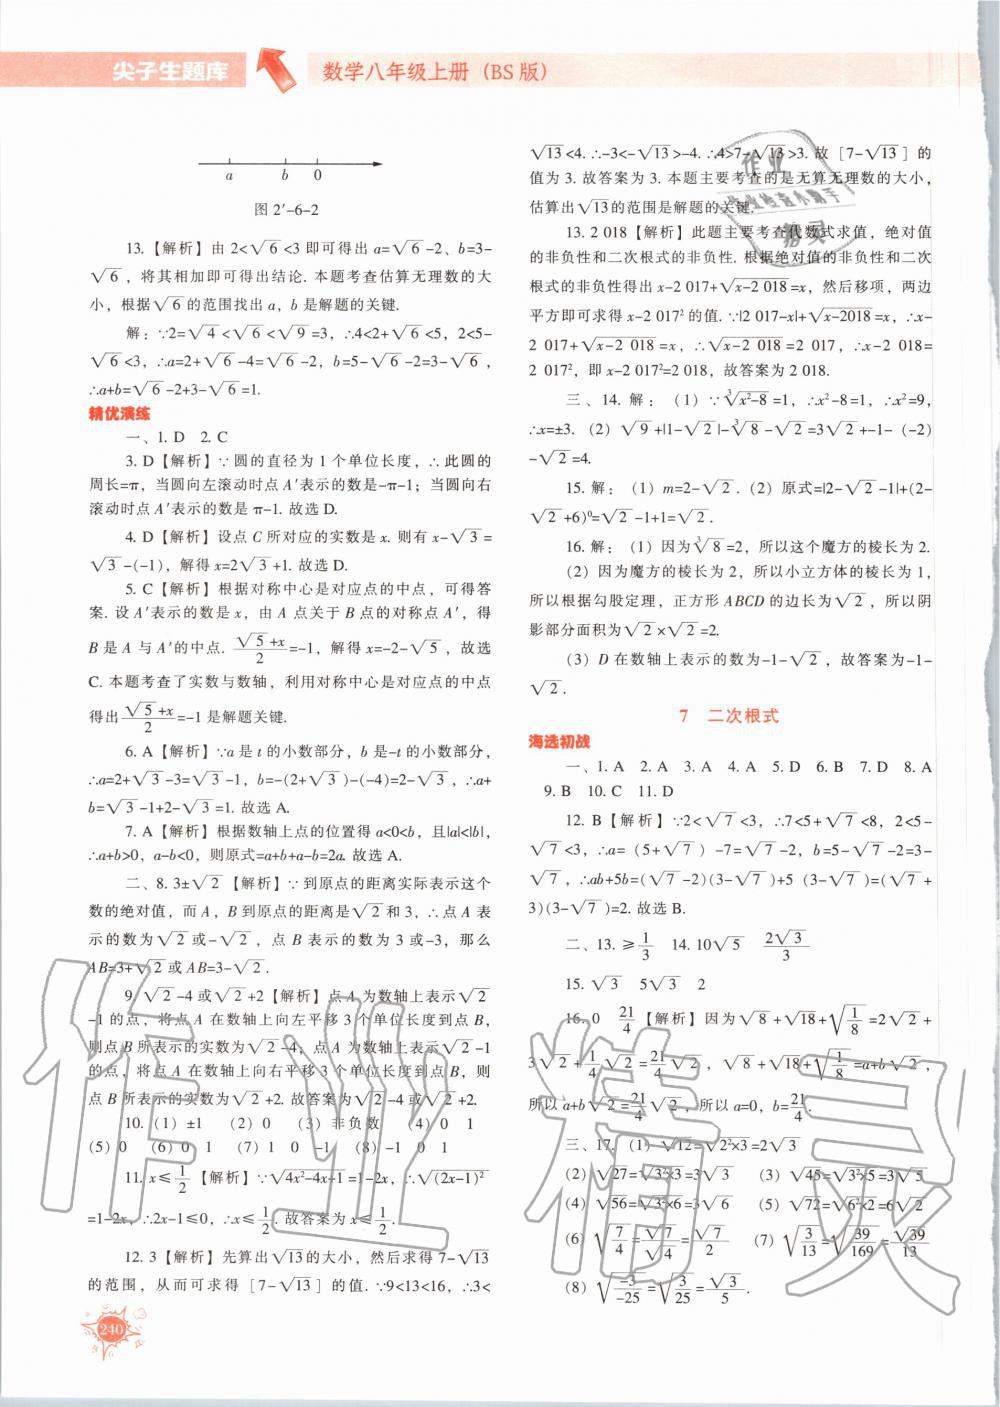 尖子生题库
数学八年级上册（BS 版）
a b 0
图 2′-6-2
13.【解析】由 2<√6<3 即可得出 a=√6-2、b=3-
√6，将其相加即可得出结论. 本题考查估算无理数的大
小，根据√6的范围找出 a，b 是解题的关键.
解：∵2=√4<√6<√9=3，∴4<2+√6<5，2<5-
√6<3，∴a=2+√6-4=√6-2，b=5-√6-2=3-√6，
∴a+b=√6-2+3-√6=1.
精优演练
一、1. D 2. C
3. D【解析】∵圆的直径为 1 个单位长度，∴此圆的
周长=π，当圆向左滚动时点 A′表示的数是-π-1；当圆向右
滚动时点 A′表示的数是 π-1. 故选 D.
4. D【解析】设点 C 所对应的实数是 x. 则有 x-√3=
√3-(-1)，解得 x=2√3+1. 故选 D.
5. C【解析】根据对称中心是对应点的中点，可得答
案. 设 A′表示的数是 x，由 A 点关于 B 点的对称点 A′，得
B 是 A 与 A′的中点. (√5+x)/2=-1，解得 x=-2-√5，故选
C. 本题考查了实数与数轴，利用对称中心是对应点的中点
得出(√5+x)/2=-1 是解题关键.
6. A【解析】∵a 是 t 的小数部分，b 是-t 的小数部分，
∴a=2+√3-3=√3-1，b=-(2+√3)-(-4)=2-√3，∴a+
b=√3-1+2-√3=1. 故选 A.
7. A【解析】根据数轴上点的位置得 a<0<b，且|a|<|b|，
∴a+b>0，a-b<0，则原式=a+b+a-b=2a. 故选 A.
二、8. 3±√2【解析】∵到原点的距离实际表示这个
数的绝对值，而 A，B 到原点的距离是√2和 3，∴点 A 表
示的数为√2或-√2，点 B 表示的数为 3 或-3，那么
AB=3+√2或 AB=3-√2.
9. √2-4 或√2+2【解析】点 A 为数轴上表示√2
-1 的点，将点 A 在数轴上向左平移 3 个单位长度到点 B，
则点 B 所表示的实数为√2-4；点 A 为数轴上表示√2-1
的点，将点 A 在数轴上向右平移 3 个单位长度到点 B，则
点 B 所表示的实数为√2+2. 故答案为√2-4 或√2+2.
10. (1) ±1 (2) 0 (3) 非负数 (4) 0 1
(5) 0 (6) 0 1 (7) 1 0 -1 (8) -1 0 1
11. x≤1/2【解析】∵√(4x²-4x+1)=1-2x，∴√((2x-1)²)
=1-2x，∴2x-1≤0，∴x≤1/2. 故答案为 x≤1/2.
12. 3【解析】先算出√13的大小，然后求得 7-√13
的范围，从而可求得［7-√13］的值. ∵9<13<16，∴3<
√13<4. ∴-3<-√13>-4. ∴4>7-√13>3. 故［7-√13］的
值为 3. 故答案为 3. 本题主要考查的是无算无理数的大小，
估算出√13的范围是解题的关键.
13. 2 018【解析】此题主要考查代数式求值，绝对值
的非负性和二次根式的非负性. 根据绝对值的非负性和二次
根式的非负性得出 x-2 017+√(x-2 018)=x，然后移项，两边
平方即可求得 x-2 017²的值. ∵|2 017-x|+√(x-2018)=x，∴x-
2 017+√(x-2 018)=x，∴√(x-2 018)=2 017，∴x-2 018=
2 017²，即 x-2 017²=2 018，故答案为 2 018.
三、14. 解：(1) ∵∛(x²-8)=1，∴x²-8=1，∴x²=9，
∴x=±3. (2) √9+|1-√2|-∛8-√2=3√2+-1-(-2)
-√2=4.
15. 解：(1) m=2-√2. (2) 原式=|2-√2-1|+(2-
√2+6)⁰=√2-1+1=√2.
16. 解：(1) 因为∛8=2，所以这个魔方的棱长为 2.
(2) 因为魔方的棱长为 2，所以小立方体的棱长为 1，
所以根据勾股定理，正方形 ABCD 的边长为√2，所以阴
影部分面积为√2×√2=2.
(3) D 在数轴上表示的数为-1-√2，故答案为-1-
√2.
7 二次根式
海选初战
一、1. A 2. A 3. A 4. A 5. D 6. B 7. D 8. A
9. B 10. C 11. D
12. B【解析】∵2<√7<3，∴7<5+√7<8，2<5-
√7<3，∴a=（5+√7）-7=√7-2，b=5-√7-2=3-
√7，∴ab+5b=(√7-2)(3-√7)+5 (3-√7)=(√7+
3)(3-√7)=2. 故选 B.
二、13. ≥1/3 14. 10√5 2√3/3
15. √3 5√3 2
16. 0 21/4【解析】因为√8+√18+√(1/8)=2√2+
3√2+1/4√2=21/4√2，√8+√18+√(1/8)=a+b√2，
所以 a+b√2=21/4√2，所以 a=0，b=21/4.
三、17. (1) √12=√(2²×3)=2√3
(2) √27=√(3²×3)=3√3 (3) √45=√(3²×5)=3√5
(4) √56=√(3²×6)=3√6 (5) √72=√(6²×2)=6√2
(6) √(7/4)=√7/√4=√7/2 (7) √(3/13)=√(39/169)=√39/13
(8) √(-3/-25)=√(3/25)=√3/5.
240
作业精灵